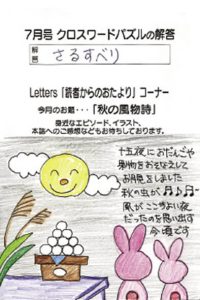 7月号 クロスワードパズルの解答
解答
さるすべり
Letters「読者からのおたより」コーナー
今月のお題･･･「秋の風物詩」
身近なエピソード、イラスト、
本誌へのご感想などもお待ちしております。
十五夜におだんごや
果物をおそなえして
お月見をしました
秋の虫が♪♪~
風がここちよい夜
だったのを思い出す
今頃です